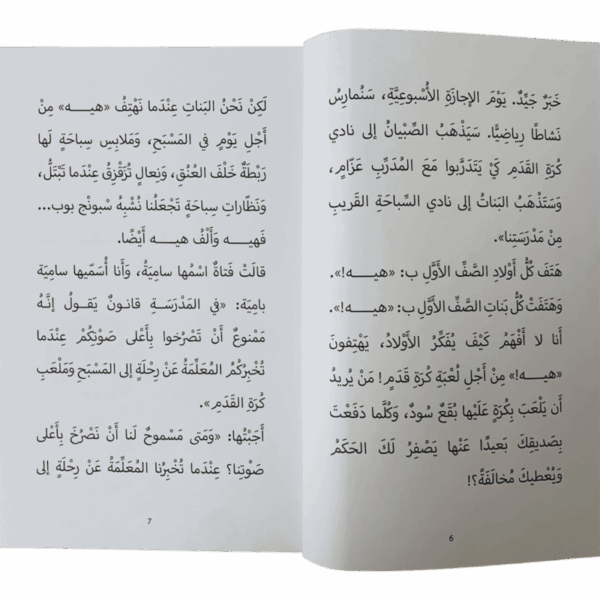 خَبَرٌ جَيِّدٌ. يَوْمَ الإجازَةِ الأُسْبوعِيَّةِ، سَنُمارِسُ
نَشاطًا رِياضِيًّا. سَيَذْهَبُ الصِّبْيانُ إلى نادي
كُرَةِ القَدَمِ كَيْ يَتَدَرَّبوا مَعَ المُدَرِّبِ عَزّام،
وَسَتَذْهَبُ البَناتُ إلى نادي السِّباحَةِ القَريبِ
مِنْ مَدْرَسَتِنا».
هَتَفَ كُلُّ أَوْلادِ الصَّفِّ الأَوَّلِ ب: «هيـــه!».
وَهَتَفَتْ كُلُّ بَناتِ الصَّفِّ الأَوَّلِ ب: «هيـــه!».
أَنا لا أَفْهَمُ كَيْفَ يُفَكِّرُ الأَوْلادُ، يَهْتِفونَ
«هيـــه!» مِنْ أَجْلِ لُعْبَةِ كُرَةِ قَدَمٍ! مَنْ يُريدُ
أَن يَلْعَبَ بِكُرَةٍ عَلَيْها بُقَعٌ سُودٌ، وَكُلَّما دَفَعْتَ
بِصَديقِكَ بَعيدًا عَنْها يَصْفِرُ لَكَ الحَكَمُ
وَيُعْطيكَ مُخالَفَةً؟!
6
لَكِنْ نَحْنُ البَناتِ عِنْدَما نَهْتِفُ «هيـــه» مِنْ
أَجْلِ يَوْمٍ في المَسْبَحِ، وَمَلابِسِ سِباحَةٍ لَها
رَبْطَةٌ خَلْفَ العُنُقِ، وَنِعالٍ تُزَقْزِقُ عِنْدَما تَبْتَلُّ،
وَنَظّاراتِ سِباحَةٍ تَجْعَلُنا نُشْبِهُ سبونْج بوب...
فَهيـــه وَأَلْفُ هيـــه أَيْضًا.
قالَتْ فَتاةٌ اسْمُها سامِيَةُ، وَأَنا أُسَمّيها سامِيَة
بامِيَة: «في المَدْرَسَةِ قانونٌ يَقولُ إنَّهُ
مَمْنوعٌ أَنْ تَصْرُخوا بِأَعْلى صَوْتِكُمْ عِنْدَما
تُخْبِرُكُمُ المُعَلِّمَةُ عَنْ رِحْلَةٍ إلى المَسْبَحِ وَمَلْعَبِ
كُرَةِ القَدَمِ».
أَجَبْتُها: «وَمَتى مَسْموحٌ لَنا أَنْ نَصْرُخَ بِأَعْلى
صَوْتِنا؟ عِنْدَما تُخْبِرُنا المُعَلِّمَةُ عَنْ رِحْلَةٍ إلى
7